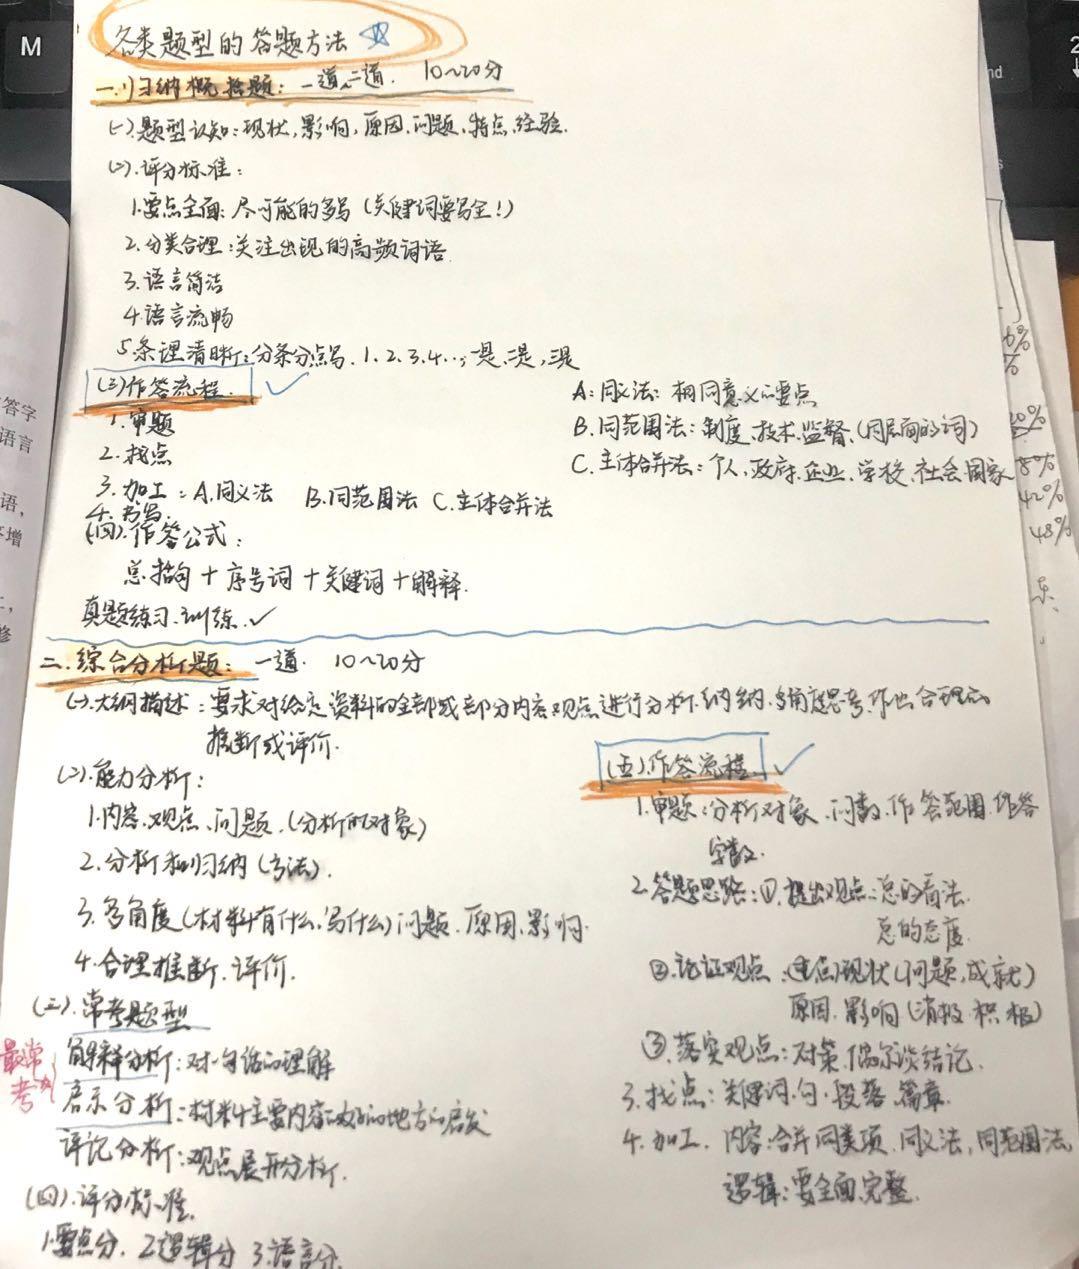 M
2
nd
s
各类题型的答题方法
一.归纳概括题：一道、二道. 10~20分
(一).题型认知：现状,影响,原因.问题.特点.经验.
(二).评分标准：
1.要点全面：尽可能的多写（关键词要写全！）
2.分类合理：关注出现的高频词语.
3.语言简洁
4.语言流畅
5.条理清晰：分条分点写.1、2、3、4...；一是,二是,三是
(三)作答流程.
1.审题
2.找点
3.加工：A.同义法 B.同范围法 C.主体合并法
4.书写.
A：同义法：相同意义的要点
B.同范围法：制度、技术、监督、(同层面的词)
C.主体合并法：个人、政府、企业、学校、社会、国家
(四).作答公式：
总括句＋序号词＋关键词＋解释.
真题练习.训练.✓
二.综合分析题：一道. 10~20分
(一).大纲描述：要求对给定资料的全部或部分内容、观点进行分析、归纳.多角度思考.作出合理的
推断或评价.
(二).能力分析：
1.内容、观点、问题.(分析的对象)
2.分析和归纳(方法).
3.多角度(材料有什么.写什么)问题.原因.影响.
4.合理推断.评价.
(三).常考题型
最常考
解释分析：对一句话的理解
启示分析：材料主要内容的好的地方的启发
评论分析：观点展开分析.
(四).评分标准.
1.要点分. 2.逻辑分 3.语言分
(五).作答流程.
1.审题：分析对象.问数.作答范围.作答
字数.
2.答题思路：①.提出观点：总的看法.
总的态度.
②.论证观点：(重点)现状(问题,成就)
原因.影响(消极.积极)
③.落实观点：对策.偶尔谈结论.
3.找点：关键词.句.段落.篇章.
4.加工.内容：合并同类项.同义法,同范围法
逻辑：要全面.完整.
答字
语言
语,
增
修
8%
42%
48%